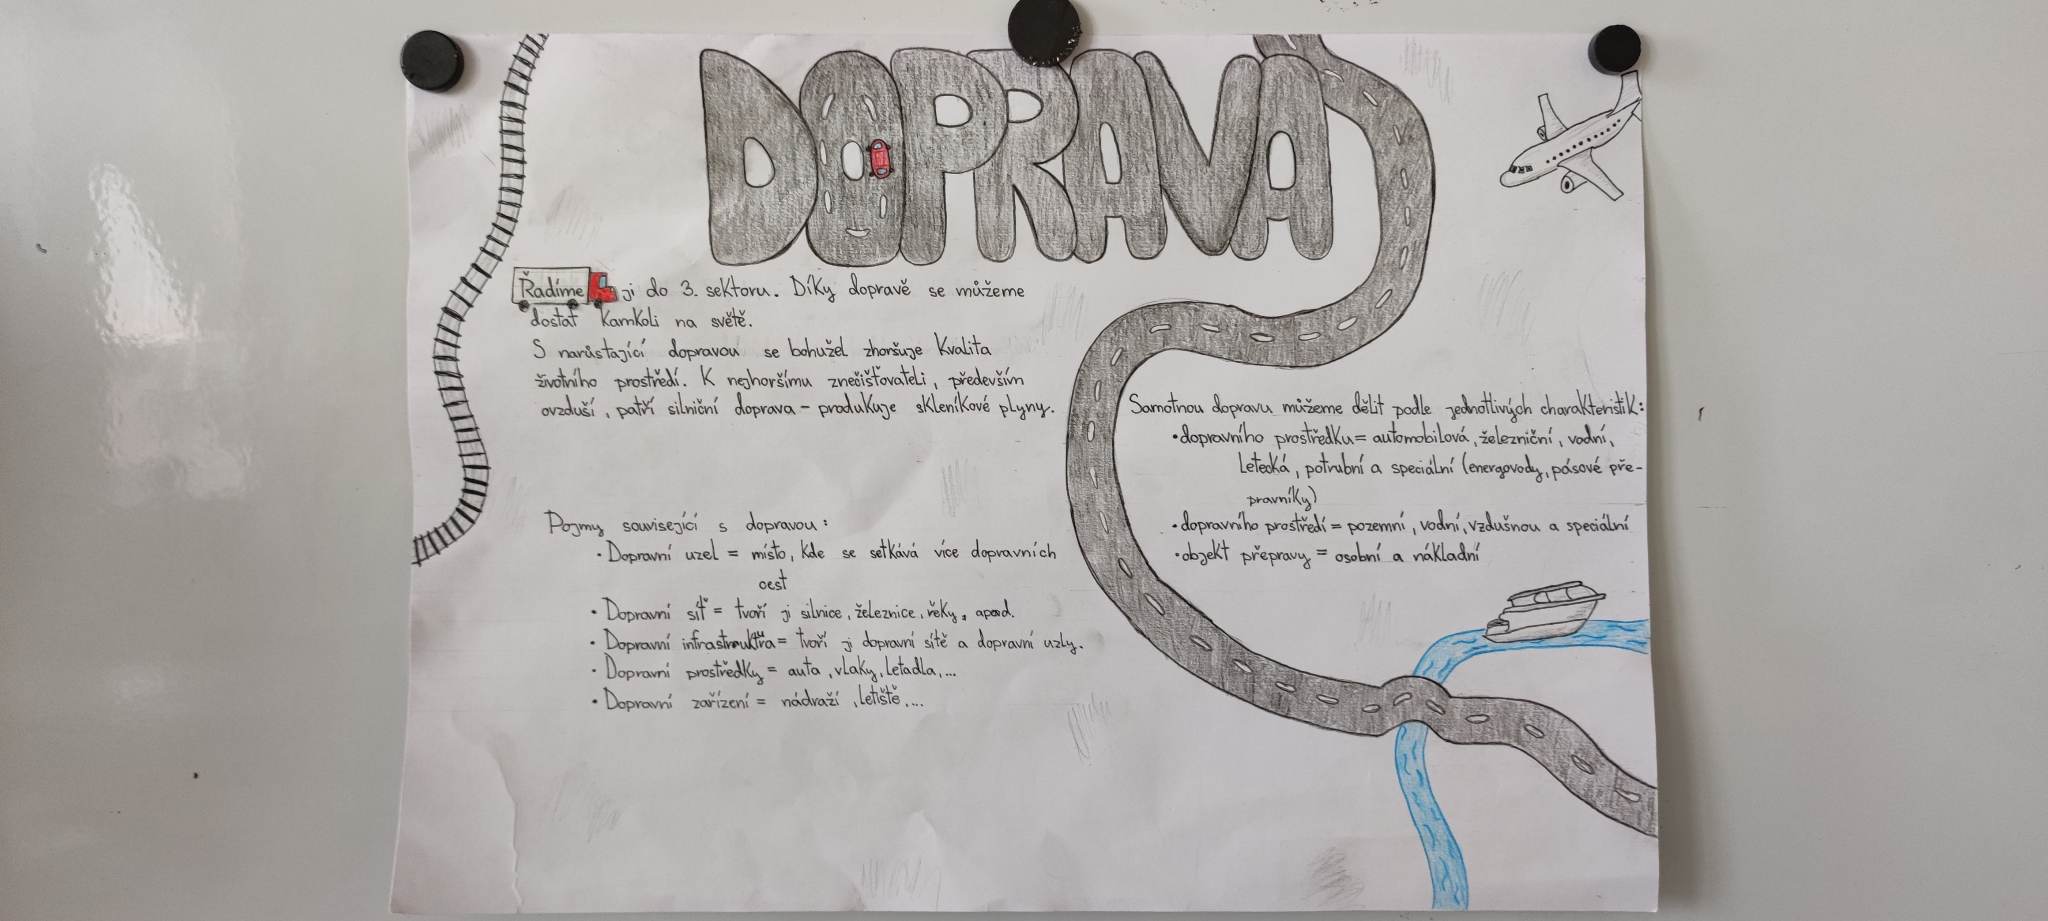 DOPRAVA
Řadíme ji do 3. sektoru. Díky dopravě se můžeme
dostat kamkoli na světě.
S narůstající dopravou se bohužel zhoršuje kvalita
životního prostředí. K nejhoršímu znečišťovateli, především
ovzduší, patří silniční doprava - produkuje skleníkové plyny.
Pojmy související s dopravou:
• Dopravní uzel = místo, kde se setkává více dopravních
cest
• Dopravní síť = tvoří ji silnice, železnice, řeky, apod.
• Dopravní infrastruktura = tvoří ji dopravní sítě a dopravní uzly.
• Dopravní prostředky = auta, vlaky, letadla,...
• Dopravní zařízení = nádraží, letiště,...
Samotnou dopravu můžeme dělit podle jednotlivých charakteristik:
• dopravního prostředku = automobilová, železniční, vodní,
letecká, potrubní a speciální (energovody, pásové pře-
pravníky)
• dopravního prostředí = pozemní, vodní, vzdušnou a speciální
• objekt přepravy = osobní a nákladní